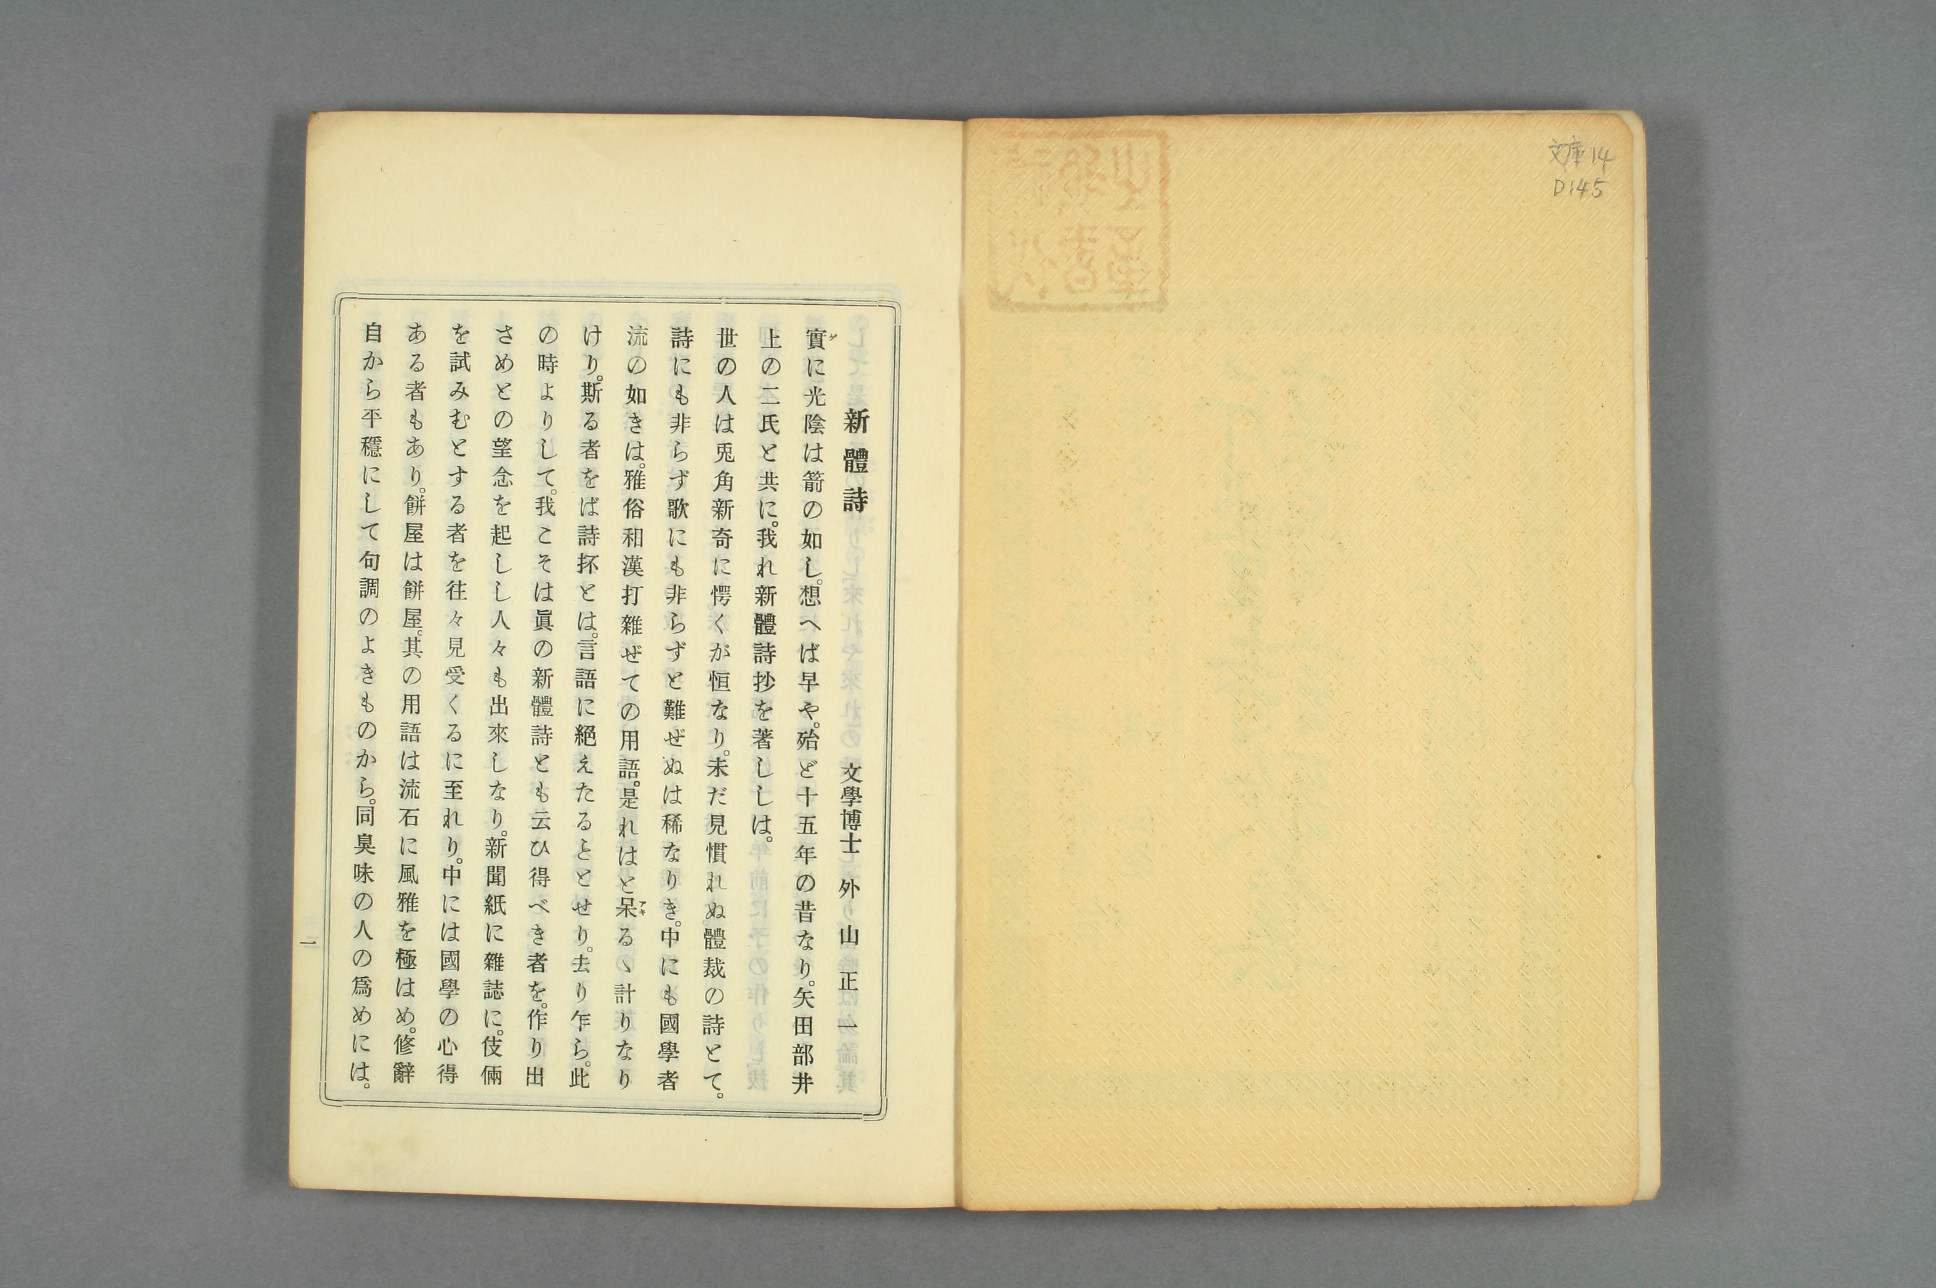 文庫14
D145
新體詩
文學博士 外山正一
實に光陰は箭の如し。想へば早や。殆ど十五年の昔なり。矢田部井
上の二氏と共に。我れ新體詩抄を著ししは。
世の人は兎角新奇に愕くが恒なり。未だ見慣れぬ體裁の詩とて。
詩にも非らず歌にも非らずと難ぜぬは稀なりき。中にも國學者
流の如きは。雅俗和漢打雜ぜての用語。是れはと呆るゝ計りなり
けり。斯る者をば詩抔とは。言語に絕えたることとせり。去り乍ら。此
の時よりして。我こそは眞の新體詩とも云ひ得べき者を。作り出
さめとの望念を起しし人々も出來しなり。新聞紙に雜誌に。伎倆
を試みむとする者を往々見受くるに至れり。中には國學の心得
ある者もあり。餅屋は餅屋。其の用語は流石に風雅を極はめ。修辭
自から平穩にして句調のよきものから。同臭味の人の爲めには。
一